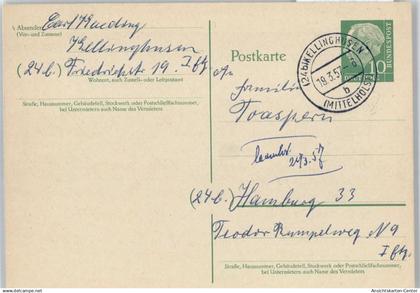 Absender:
(Vor- und Zuname)
Kellinghusen
(24b) Friedrichstr 19. I Etg
Wohnort, auch Zustell- oder Leitpostamt
Straße, Hausnummer, Gebäudeteil, Stockwerk oder Postschließfachnummer,
bei Untermietern auch Name des Vermieters
Postkarte
DEUTSCHE BUNDESPOST
10
(24b) KELLINGHUSEN
19.3.57
b
(MITTELHOLST)
Familie
Toaspern
21/3.57
(24b.) Hamburg 33
Teodor Rumpelweg No 9
I Etg.
Straße, Hausnummer, Gebäudeteil, Stockwerk oder Postschließfachnummer,
bei Untermietern auch Name des Vermieters
Ansichtskarten-Center.de